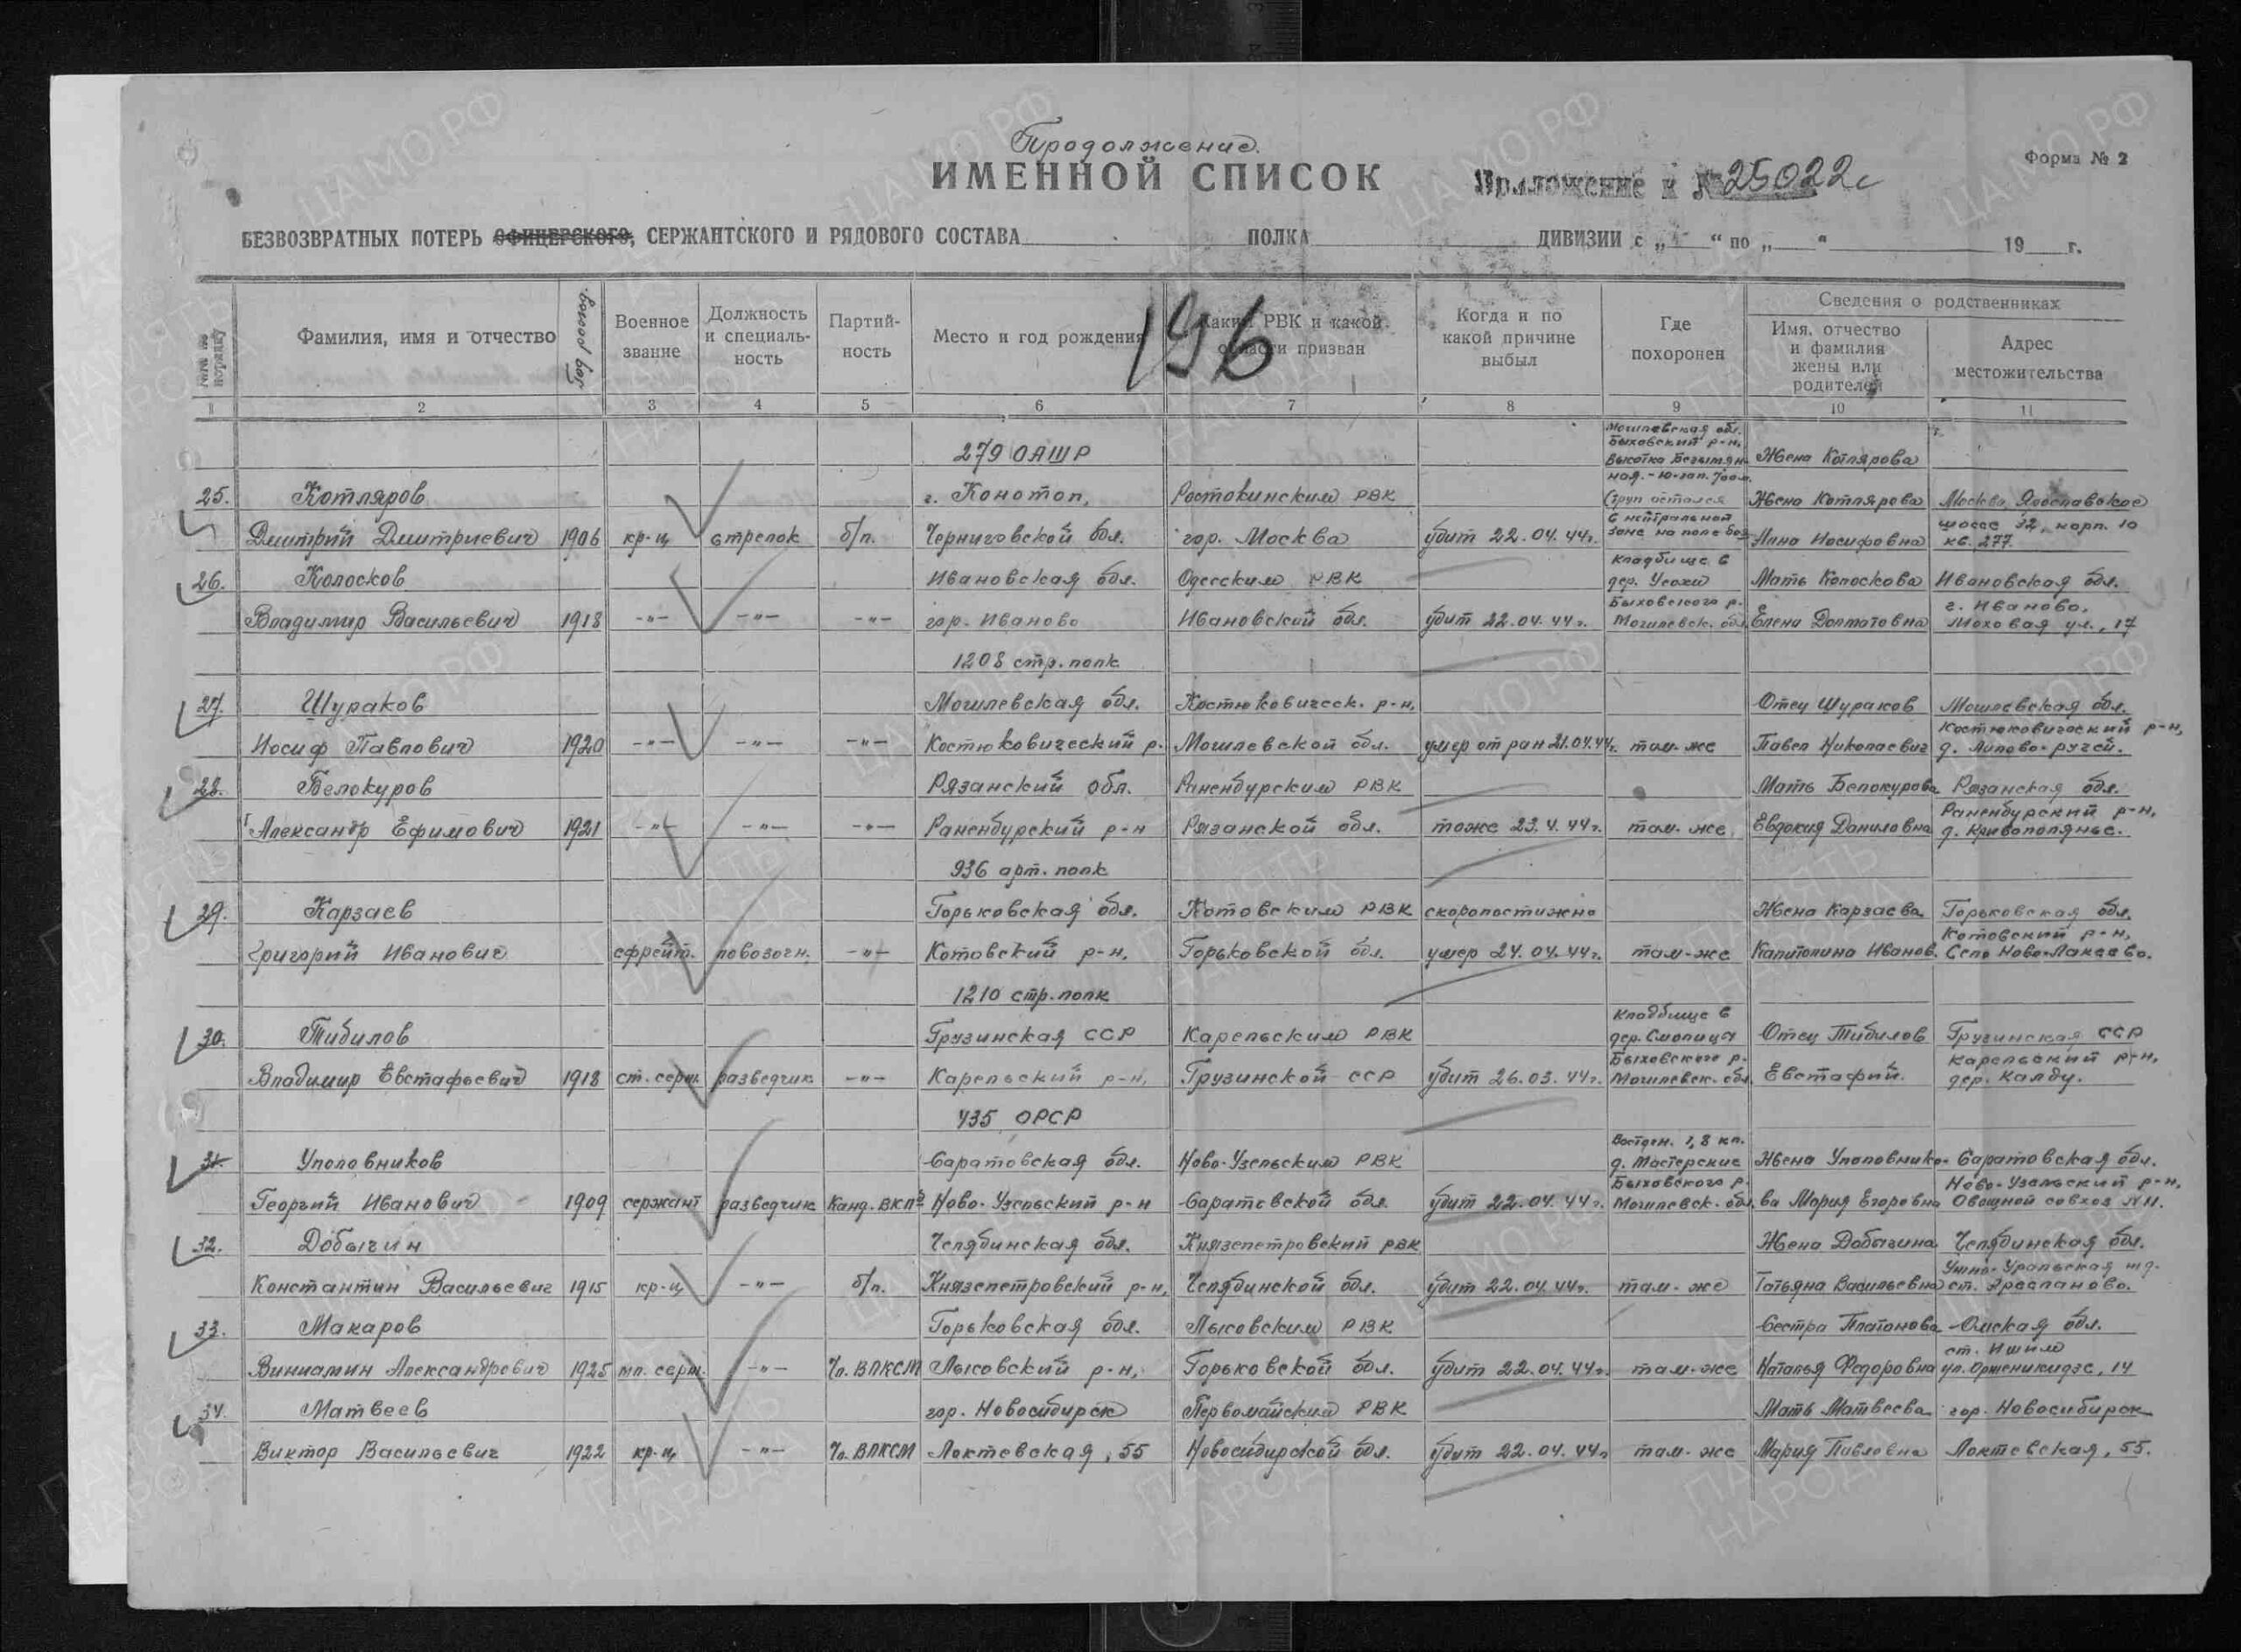 Продолжение.
ИМЕННОЙ СПИСОК
Приложение к № 25022с
Форма № 2
БЕЗВОЗВРАТНЫХ ПОТЕРЬ ОФИЦЕРСКОГО, СЕРЖАНТСКОГО И РЯДОВОГО СОСТАВА ПОЛКА ДИВИЗИИ с „ “ по „ “ 19 г.
196
№№ по порядку
Фамилия, имя и отчество
Военное звание
Должность и специальность
Партийность
Место и год рождения
Каким РВК и какой области призван
Когда и по какой причине выбыл
Где похоронен
Сведения о родственниках
Имя, отчество и фамилия жены или родителей
Адрес местожительства
1 2 3 4 5 6 7 8 9 10 11
Могилевская обл.
Быховский р-н,
279 ОАШР высотка Безымян- Жена Котлярова
ная.-ю-зап. 700 м.
25. Котляров г. Конотоп, Ростокинским РВК (труп остался Жена Котлярова Москва Ярославское
в нейтральной шоссе 32, корп. 10
Дмитрий Дмитриевич 1906 кр-ц стрелок б/п. Черниговской обл. гор. Москва убит 22.04.44г. зоне на поле боя Анна Иосифовна кв. 277.
кладбище в
26. Колосков Ивановская обл. Одесским РВК дер. Усохи Мать Колоскова Ивановская обл.
Быховского р. г. Иваново,
Владимир Васильевич 1918 -"- -"- -"- гор. Иваново Ивановской обл. убит 22.04.44г. Могилевск. обл. Елена Долматовна Моховая ул., 17
1208 стр. полк
27. Шураков Могилевская обл. Костюковическ. р-н, Отец Шураков Могилевская обл.
Костюковичский р-н,
Иосиф Павлович 1920 -"- -"- -"- Костюковический р. Могилевской обл. умер от ран 21.04.44г. там-же Павел Николаевич д. Липово-ручей.
28. Белокуров Рязанский обл. Раненбурским РВК Мать Белокурова Рязанская обл.
Раненбурский р-н,
Александр Ефимович 1921 -"- -"- -"- Раненбурский р-н Рязанской обл. тоже 23.4.44г. там-же Евдокия Даниловна д. Кривополянье.
936 арт. полк
29. Карзаев Горьковская обл. Котовским РВК скоропостижно Жена Карзаева Горьковская обл.
Котовский р-н,
Григорий Иванович ефрейт. повозочн. -"- Котовский р-н, Горьковской обл. умер 24.04.44г. там-же Капитолина Иванов. Село Ново-Лакеево.
1210 стр. полк
кладбище в
30. Тибилов Грузинская ССР Карельским РВК дер. Смолица Отец Тибилов Грузинская ССР
Быховского р. Карельский р-н,
Владимир Евстафьевич 1918 ст. серж. разведчик -"- Карельский р-н, Грузинской ССР убит 26.03.44г. Могилевск. обл. Евстафий. дер. Калду.
435 ОРСР
1,8 км.
31. Уполовников Саратовская обл. Ново-Узельским РВК д. Мастерские Жена Уполовнико- Саратовская обл.
Быховского р. Ново-Узельский р-н,
Георгий Иванович 1909 сержант разведчик Канд. ВКПб Ново-Узельский р-н Саратовской обл. убит 22.04.44г. Могилевск. обл. ва Мария Егоровна Овощной совхоз №11.
32. Добычин Челябинская обл. Князепетровский РВК Жена Добычина Челябинская обл.
Южно-Уральская жд.
Константин Васильевич 1915 кр-ц -"- б/п. Князепетровский р-н, Челябинской обл. убит 22.04.44г. там-же Татьяна Васильевна ст. Арасланово.
33. Макаров Горьковская обл. Лысовским РВК Сестра Платонова Омская обл.
ст. Ишим
Виниамин Александрович 1925 мл. серж. -"- Чл. ВЛКСМ Лысовский р-н, Горьковской обл. убит 22.04.44г. там-же Наталья Федоровна ул. Орженикидзе, 14
34. Матвеев гор. Новосибирск Первомайским РВК Мать Матвеева гор. Новосибирск
Виктор Васильевич 1922 кр-ц -"- Чл. ВЛКСМ Локтевская, 55 Новосибирской обл. убит 22.04.44г. там-же Мария Павловна Локтевская, 55.